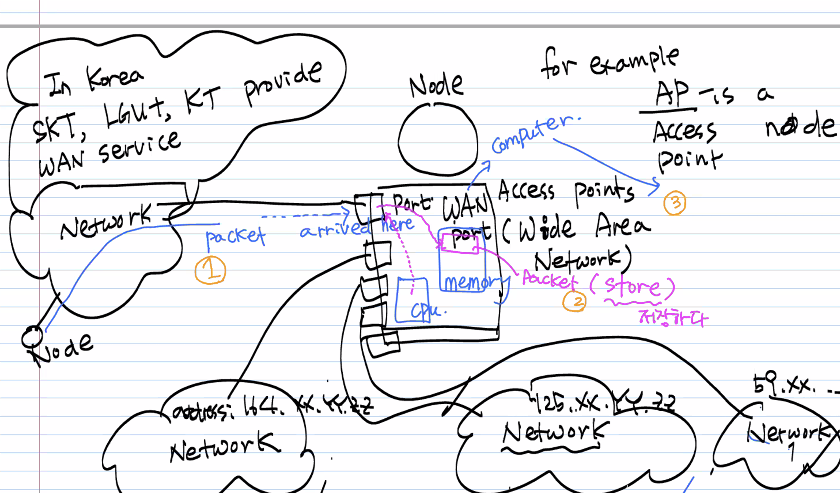 In Korea
SKT, LGU+, KT provide
WAN service
Node
for example
AP is a
Access node
point
computer.
③
Network
packet
①
arrived here
port WAN
port
Access points
(Wide Area
Network)
memory
cpu.
Packet (store)
②
저장하다
Node
address: 164. XX. YY. ZZ
Network
125. XX. YY. ZZ
Network
59. XX. ...
Network
1